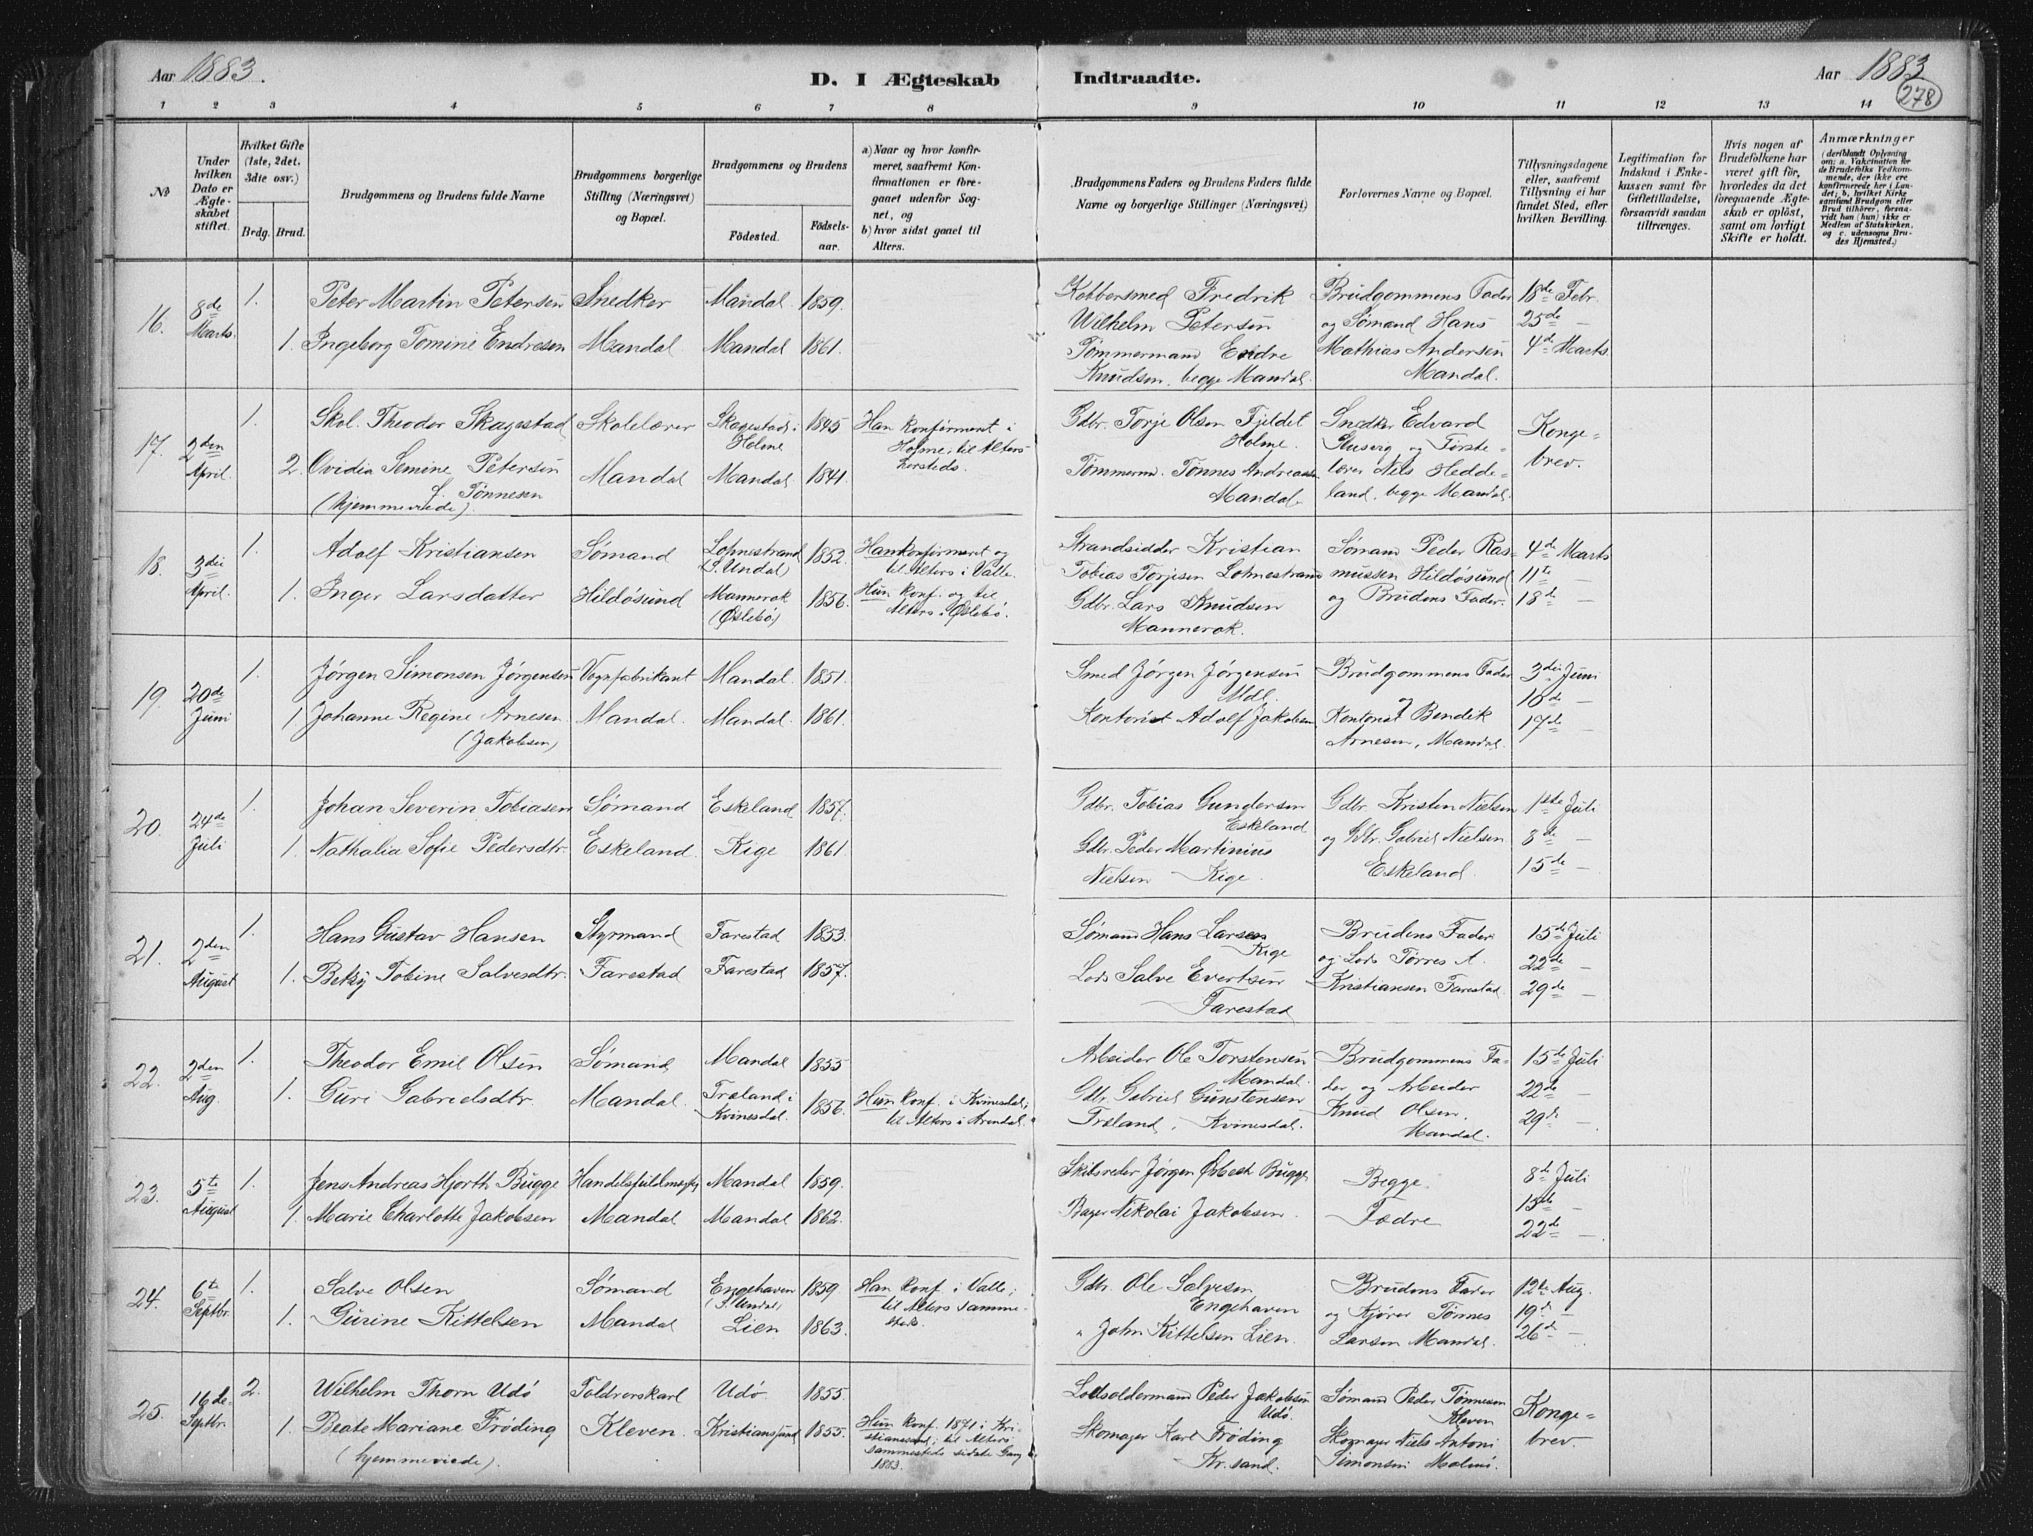 Aar 1883.
D. I Ægteskab Indtraadte.
Aar 1883
278
1 2 3 4 5 6 7 8 9 10 11 12 13 14
No
Under hvilken Dato er Ægteskabet stiftet.
Hvilket Gifte (1ste, 2det. 3die osv.)
Brdg. Brud.
Brudgommens og Brudens fulde Navne
Brudgommens borgerlige Stilling (Næringsvei) og Bopæl.
Brudgommens og Brudens
Födested.
Födselsaar.
a) Naar og hvor konfirmeret, saafremt Konfirmationen er foregaaet udenfor Sognet, og
b) hvor sidst gaaet til Alters.
Brudgommens Faders og Brudens Faders fulde Navne og borgerlige Stillinger (Næringsvei)
Forlovernes Navne og Bopæl.
Tillysningsdagene eller, saafremt Tillysning ei har fundet Sted, efter hvilken Bevilling.
Legitimation for Indskud i Enkekassen samt for Giftetilladelse, forsaavidt saadan tiltrænges.
Hvis nogen af Brudefolkene har været gift för, hvorledes da det foregaaende Ægteskab er oplöst, samt om lovligt Skifte er holdt.
Anmærkninger
(deriblandt Oplysning om: a. Vakcination for de Brudefolks Vedkommende, der ikke ere konfirmerede her i Landet; b. hvilket Kirkesamfund Brudgom eller Brud tilhörer, forsaavidt han (hun) ikke er Medlem af Statskirken, og c. udensogns Brudes Hjemsted.)
16. 8de Marts. 1. Peter Martin Petersen Snedker Mandal 1859. Kobbersmed Fredrik Brudgommens Fader 18de Febr.
Wilhelm Petersen og Sømand Hans 25de —
1. Ingeborg Tomine Endresen Mandal Mandal 1861. Tømmermand Endre Mathias Andersen 4de Marts.
Knudsen, begge Mandal. Mandal.
17. 2den April. 1. Skol. Theodor Skagestad Skolelærer Skagestad i Holme 1845 Han konfirmeret i Holme, til Alters hersteds. Gdbr. Torje Olsen Fjeldet Snedker Edvard Konge-
Holme. og Første-
2. Ovidia Semine Petersen Mandal Mandal 1841. Tømmerm. Tønnes Andreassen lærer Niels Hedde- brev.
f. Tønnesen Mandal. land, begge Mandal.
(hjemmeviede).
18. 3die April. 1. Adolf Kristiansen Sømand Lohnestrand (S. Undal) 1852. Han konfirmeret og til Alters i Valle. Strandsidder Kristian Sømand Peder Ras- 4de Marts
Tobias Torjesen Lohnestrand mussen Hildøsund 11te —
1. Inger Larsdatter Hildøsund Mannerok (Øslebø) 1856. Hun konf. og til Alters i Øslebø. Gdbr. Lars Knudsen og Brudens Fader. 18de —
Mannerok.
19. 20de Juni 1. Jørgen Simonsen Jørgensen Vognfabrikant Mandal. 1851. Smed Jørgen Jørgensen Brudgommens Fader 3die Juni
Mdl. og 10de —
1 Johanne Regine Arnesen Mandal. Mandal. 1861. Kontorist Adolf Jakobsen Kontorist Bendik 17de —
(Jakobsen) Arnesen, Mandal.
20. 24de Juli 1. Johan Severin Tobiasen Sømand Eskeland 1857. Gdbr. Tobias Gundersen Gdbr. Kristen Nielsen 1ste Juli
Eskeland og Gdbr. Gabriel Nielsen 8de —
1. Nathalia Sofie Pedersdtr. Eskeland. Kige 1861. Gdbr. Peder Martinius Eskeland. 15de —
Nielsen Kige.
21. 2den August 1. Hans Gustav Hansen Styrmand Farestad 1853. Sømand Hans Larsen Brudens Fader 15de Juli
Kige og Lods Tørres A. 22de —
1. Betsy Tobine Salvesdtr. Farestad Farestad 1857. Lods Salve Evertsen Kristiansen Farestad. 29de —
Farestad
22. 2den Aug. 1. Theodor Emil Olsen Sømand Mandal 1855 Arbeider Ole Torstensen Brudgommens Fa- 15de Juli
Mandal. der og Arbeider 22de —
1. Guri Gabrielsdtr. Mandal. Træland i Kvinesdal. 1856. Hun konf. i Kvinesdal, til Alters i Arendal. Gdbr. Gabriel Gunstensen Knud Olsen, 29de —
Træland, Kvinesdal. Mandal.
23. 5te August 1. Jens Andreas Hjorth Bugge Handelsfuldmægtig Mandal 1859. Skibsreder Jørgen Bugge Begge 8de Juli
15de
1. Marie Charlotte Jakobsen Mandal Mandal 1862. Bager Nikolai Jakobsen. Fædre 22de —
24. 6te Septbr. 1. Salve Olsen Sømand Engehaven (S. Undal) 1859 Han konf. i Valle, til Alters sammesteds. Gdbr. Ole Salvesen Brudens Fader 12te Aug.
Engehaven og Kjører Tønnes 19de —
1. Gurine Kittelsen Mandal Lien 1863. " John Kittelsen Lien. Larsen Mandal. 26de —
25. 16de Septbr. 2. Wilhelm Thorn Udø Toldrorskarl Udø. 1855 Lodsoldermand Peder Jakobsen Sømand Peder Tønnesen Konge-
Udø. Kleven
1. Beate Mariane Frøding Kleven. Kristianssand 1855. Hun konf. 1871 i Kristianssand; til Alters sammesteds sidste Gang 1883. Skomager Karl Frøding Skomager Niels Antoni brev.
(hjemmeviede). Kr.sand. Simonsen Malmø.